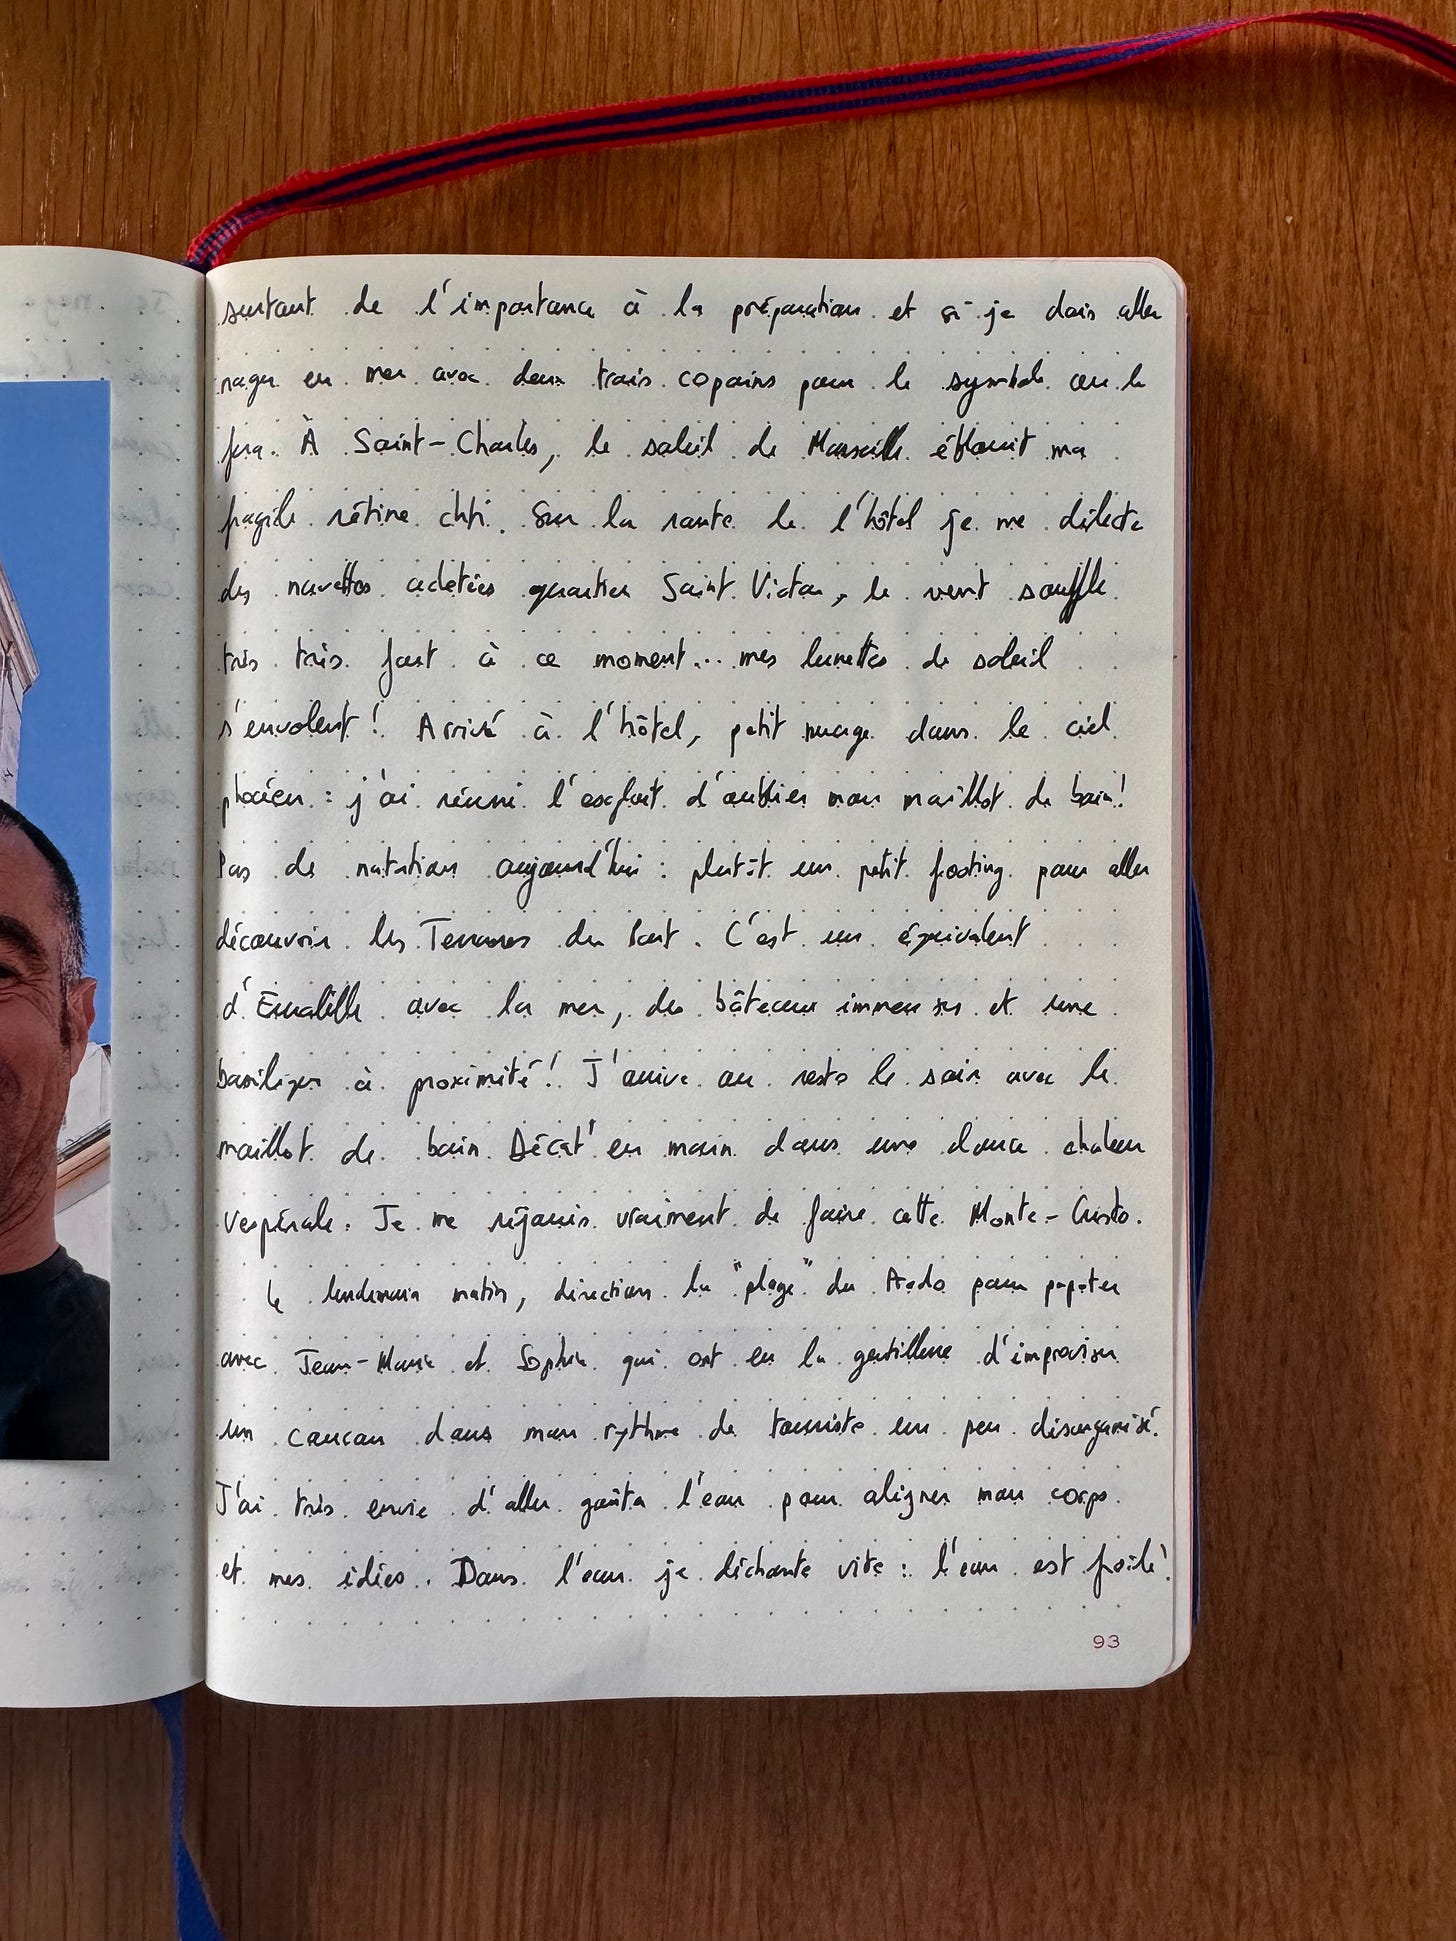 surtout de l'importance à la préparation et si je dois aller
nager en mer avec deux trois copains pour le symbole on le
fera. À Saint-Charles, le soleil de Marseille éblouit ma
fragile rétine chti. Sur la route de l'hôtel je me délecte
des navettes achetées quartier Saint Victor, le vent souffle
très très fort à ce moment... mes lunettes de soleil
s'envolent ! Arrivé à l'hôtel, petit nuage dans le ciel
phocéen : j'ai réussi l'exploit d'oublier mon maillot de bain !
Pas de natation aujourd'hui : plutôt un petit footing pour aller
découvrir les Terrasses du Port. C'est un équivalent
d'Euralille avec la mer, des bâteaux immenses et une
basilique à proximité ! J'arrive au resto le soir avec le
maillot de bain Décat' en main dans une douce chaleur
vespérale. Je me réjouis vraiment de faire cette Monte-Cristo.
Le lendemain matin, direction la "plage" du Prado pour papoter
avec Jean-Marie et Sophie qui ont eu la gentillesse d'improviser
un coucou dans mon rythme de touriste un peu désorganisé.
J'ai très envie d'aller goûter l'eau pour aligner mon corps
et mes idées. Dans l'eau je déchante vite : l'eau est froide !
93